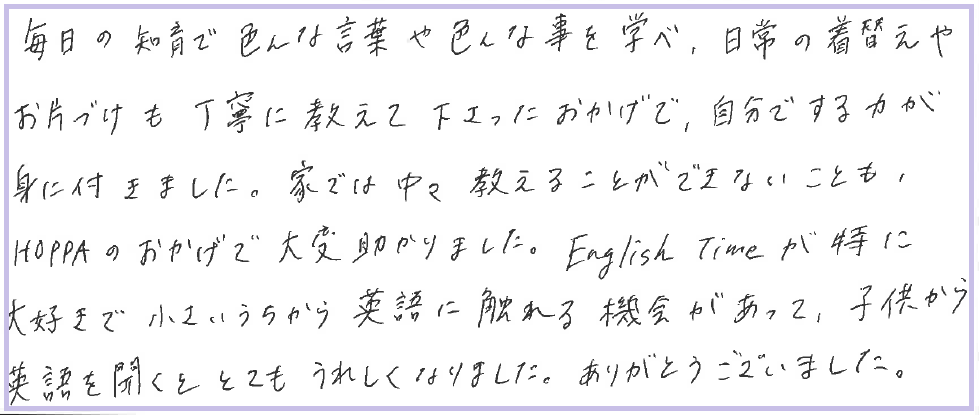 毎日の知育で色んな言葉や色んな事を学べ,日常の着替えや
お片づけも丁寧に教えて下さったおかげで,自分でする力が
身に付きました。家では中々教えることができないことも,
HOPPAのおかげで大変助かりました。English Timeが特に
大好きで小さいうちから英語に触れる機会があって,子供から
英語を聞くととてもうれしくなりました。ありがとうございました。